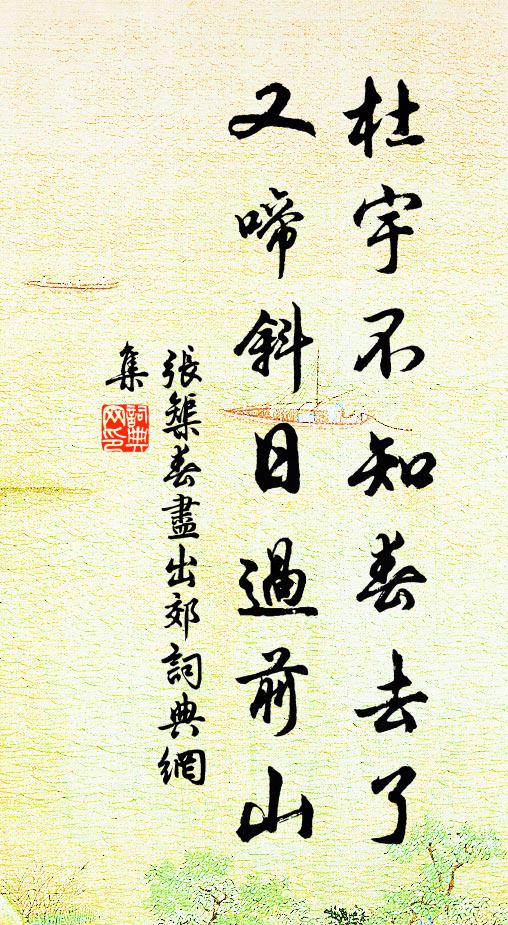 杜宇不知春去了
又啼斜日過前山
張榘春盡出郊詞典網
集
詞典
网印